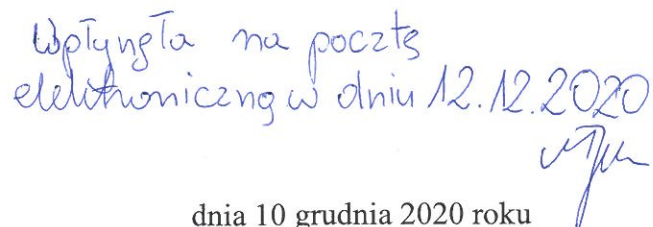 Wpłynęła na pocztę
elektroniczną w dniu 12.12.2020
dnia 10 grudnia 2020 roku